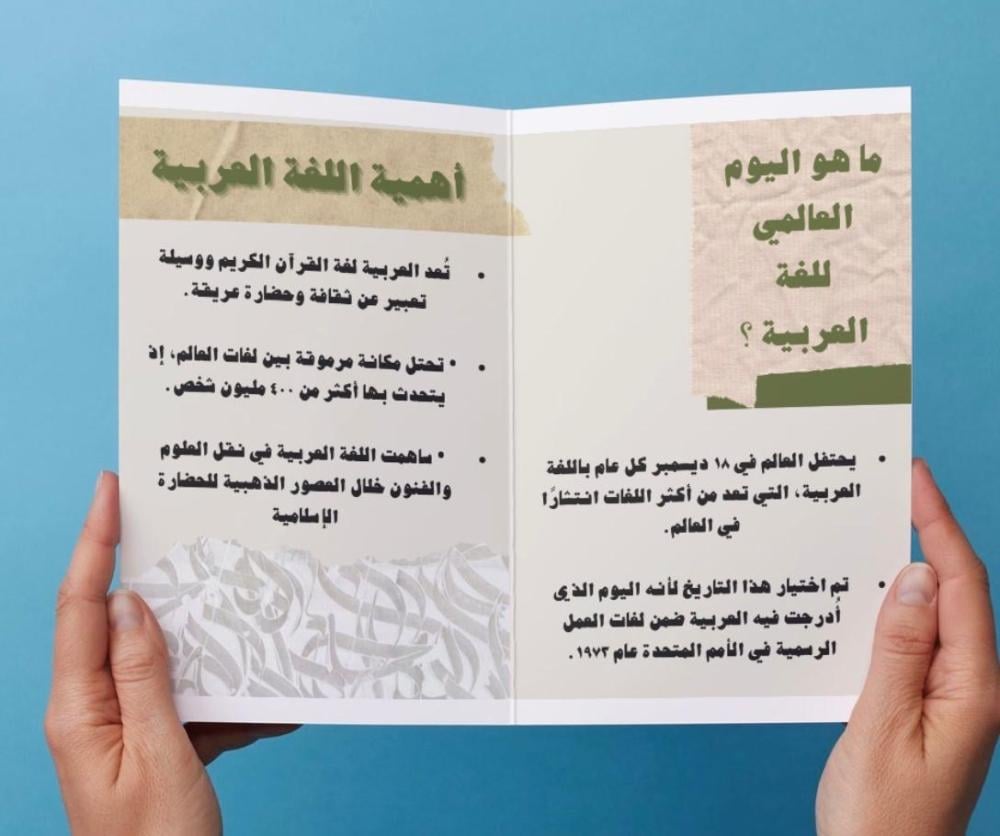 ما هو اليوم
العالمي
للغة
العربية ؟
• يحتفل العالم في ١٨ ديسمبر كل عام باللغة
العربية، التي تعد من أكثر اللغات انتشارًا
في العالم.
• تم اختيار هذا التاريخ لأنه اليوم الذي
أدرجت فيه العربية ضمن لغات العمل
الرسمية في الأمم المتحدة عام ١٩٧٣.
أهمية اللغة العربية
• تُعد العربية لغة القرآن الكريم ووسيلة
تعبير عن ثقافة وحضارة عريقة.
• • تحتل مكانة مرموقة بين لغات العالم، إذ
يتحدث بها أكثر من ٤٠٠ مليون شخص.
• • ساهمت اللغة العربية في نقل العلوم
والفنون خلال العصور الذهبية للحضارة
الإسلامية